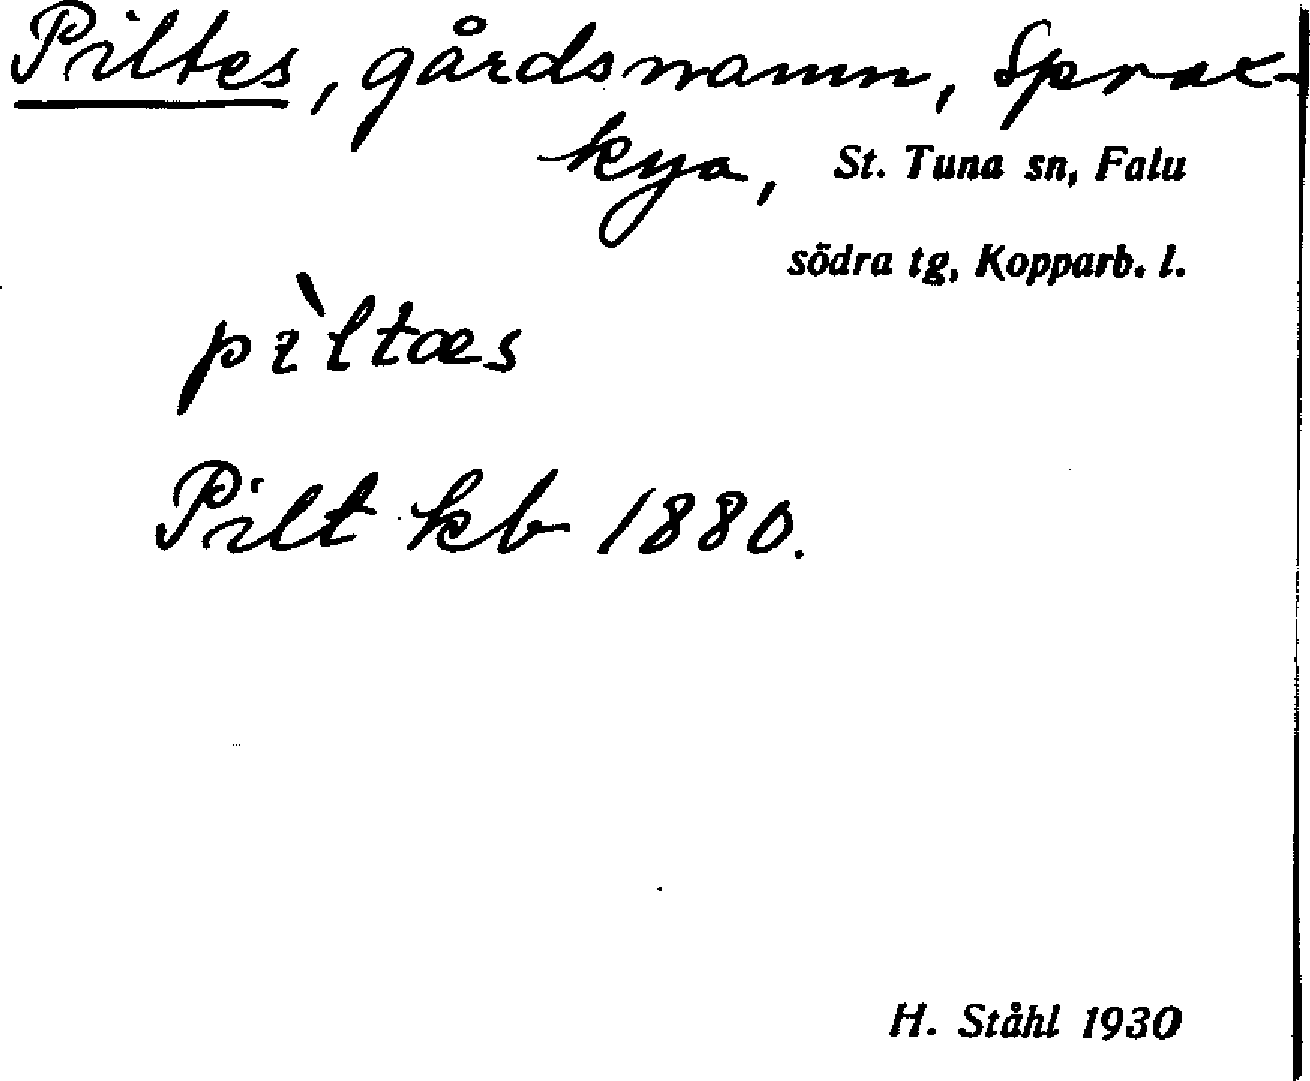 Piltes, gårdsnamn, Sprax-
kya, St. Tuna sn, Falu
södra tg, Kopparb. l.
pìltæs
Pilt kb 1880.
H. Ståhl 1930